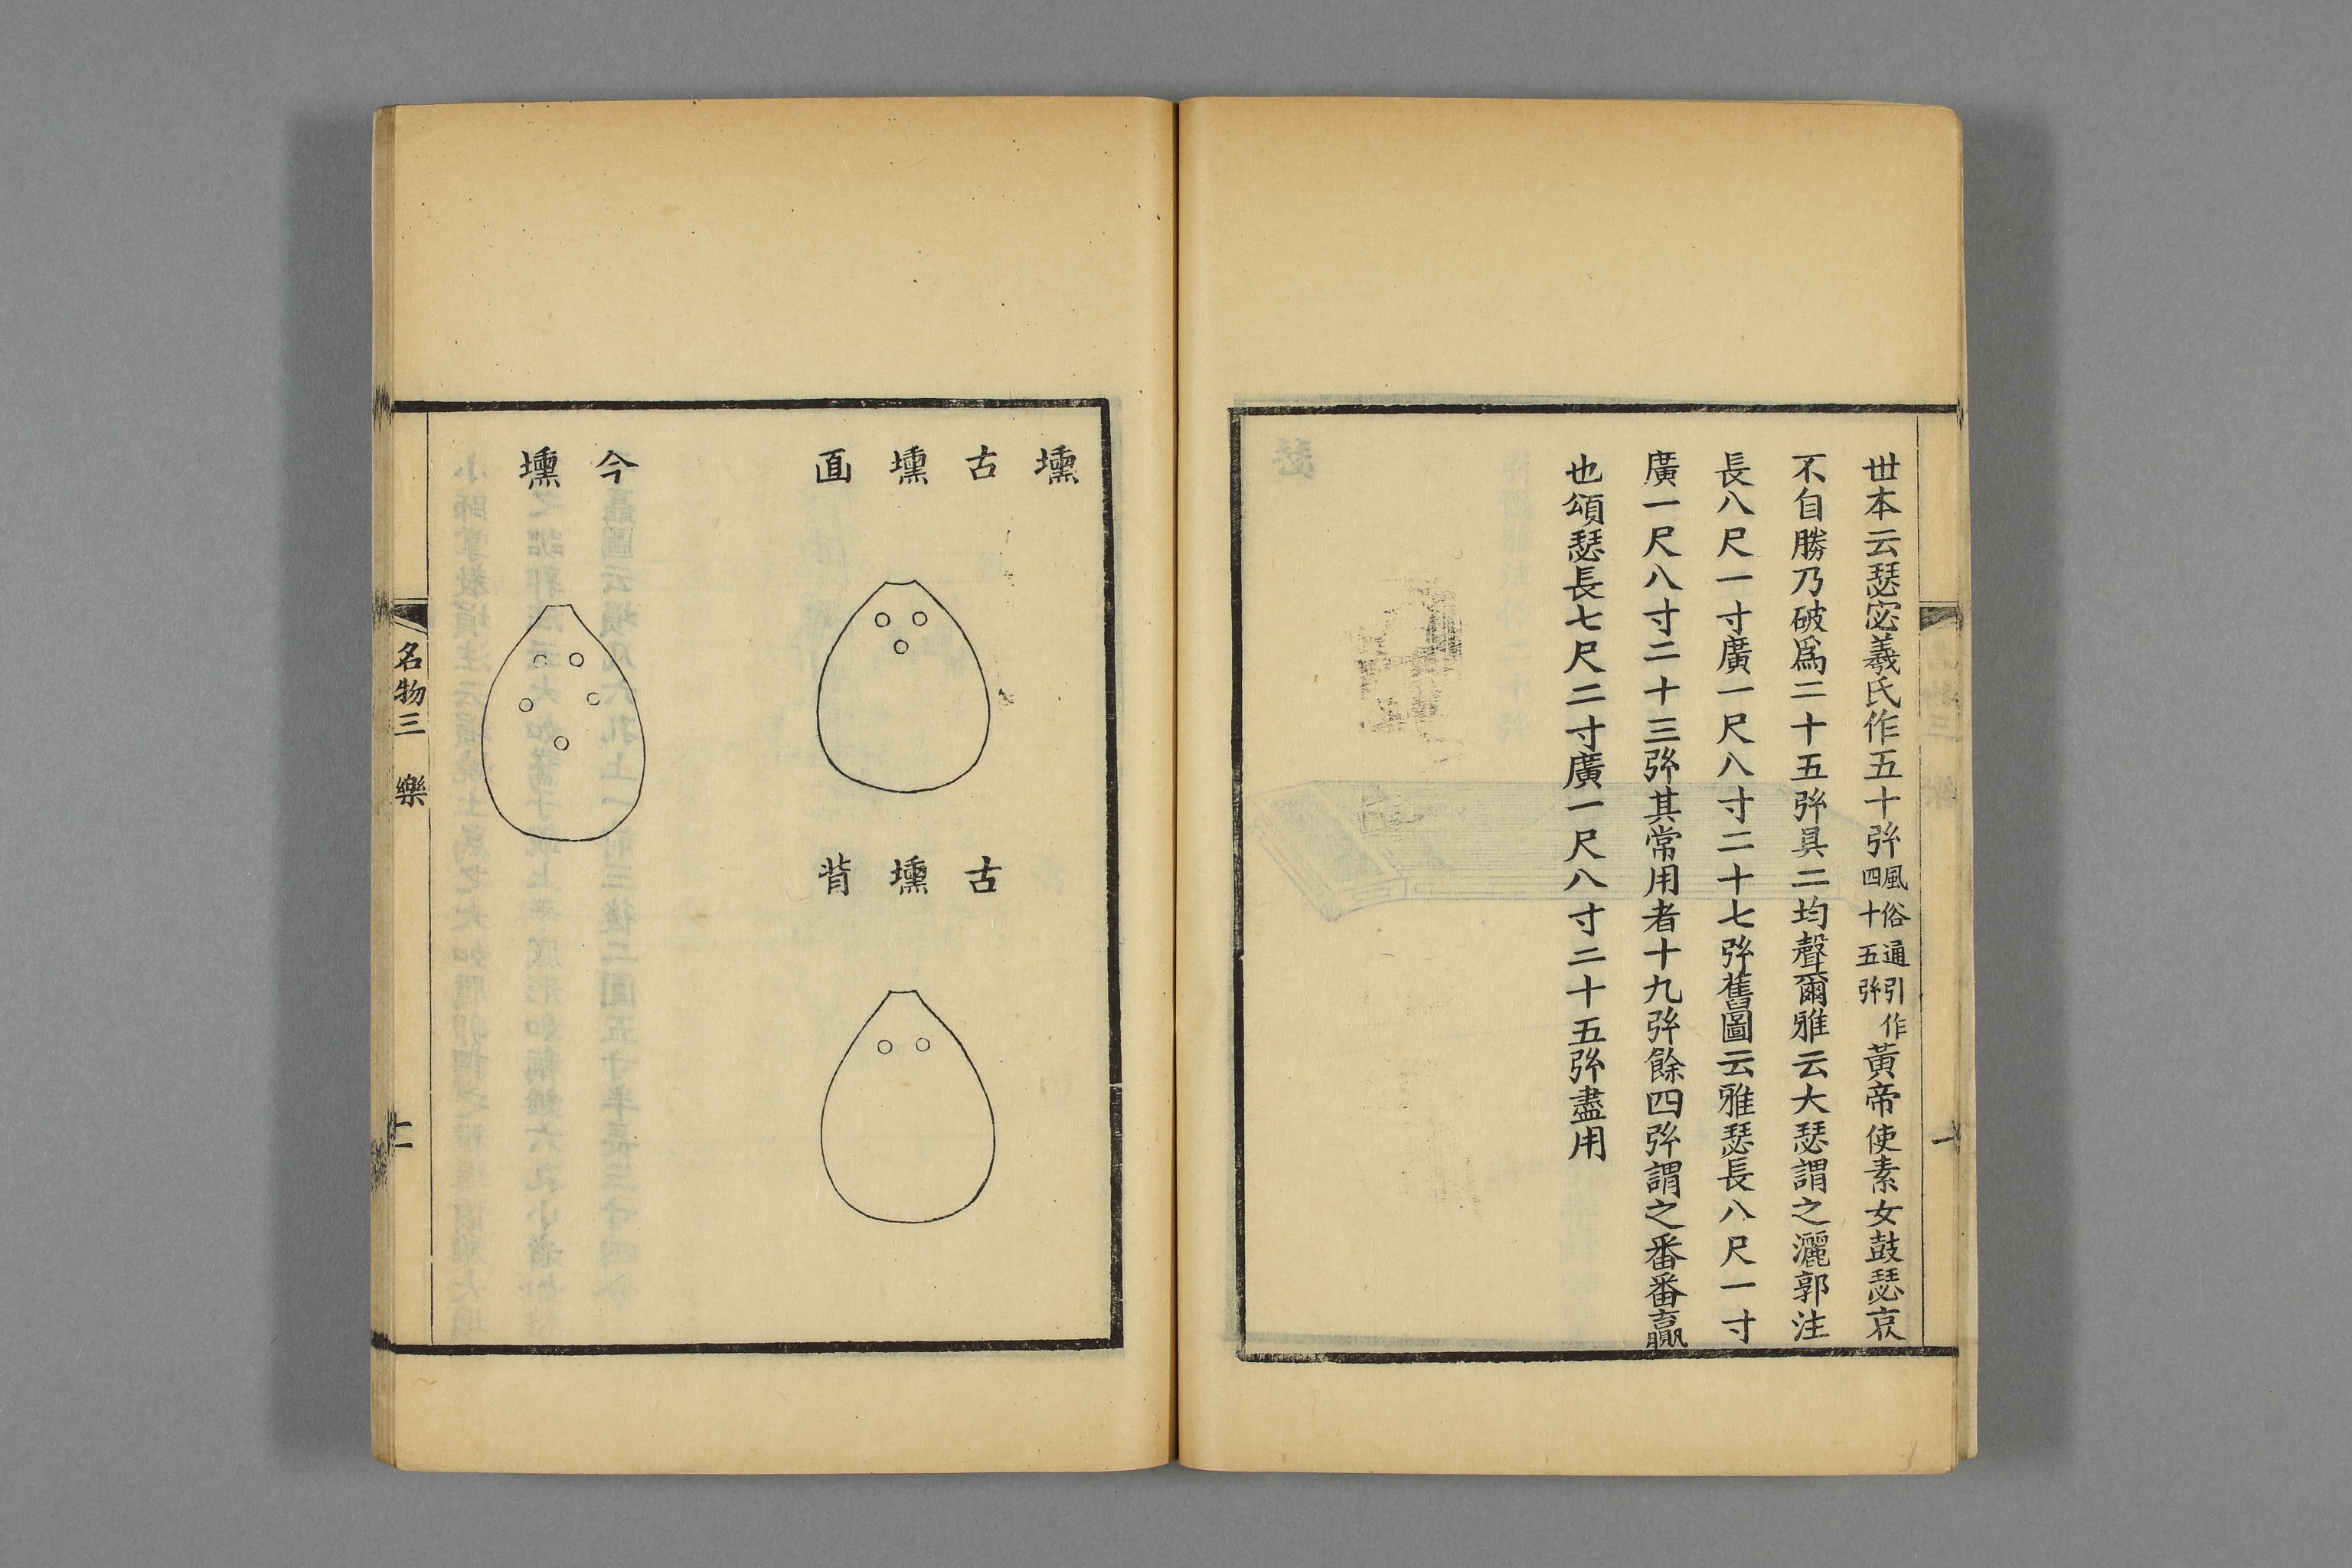 世本云瑟宓羲氏作五十弦風俗通引作四十五弦黃帝使素女鼓瑟哀
不自勝乃破爲二十五弦具二均聲爾雅云大瑟謂之灑郭注
長八尺一寸廣一尺八寸二十七弦舊圖云雅瑟長八尺一寸
廣一尺八寸二十三弦其常用者十九弦餘四弦謂之番番贏
也頌瑟長七尺二寸廣一尺八寸二十五弦盡用
壎
古壎面
古壎背
今壎
名物三 樂